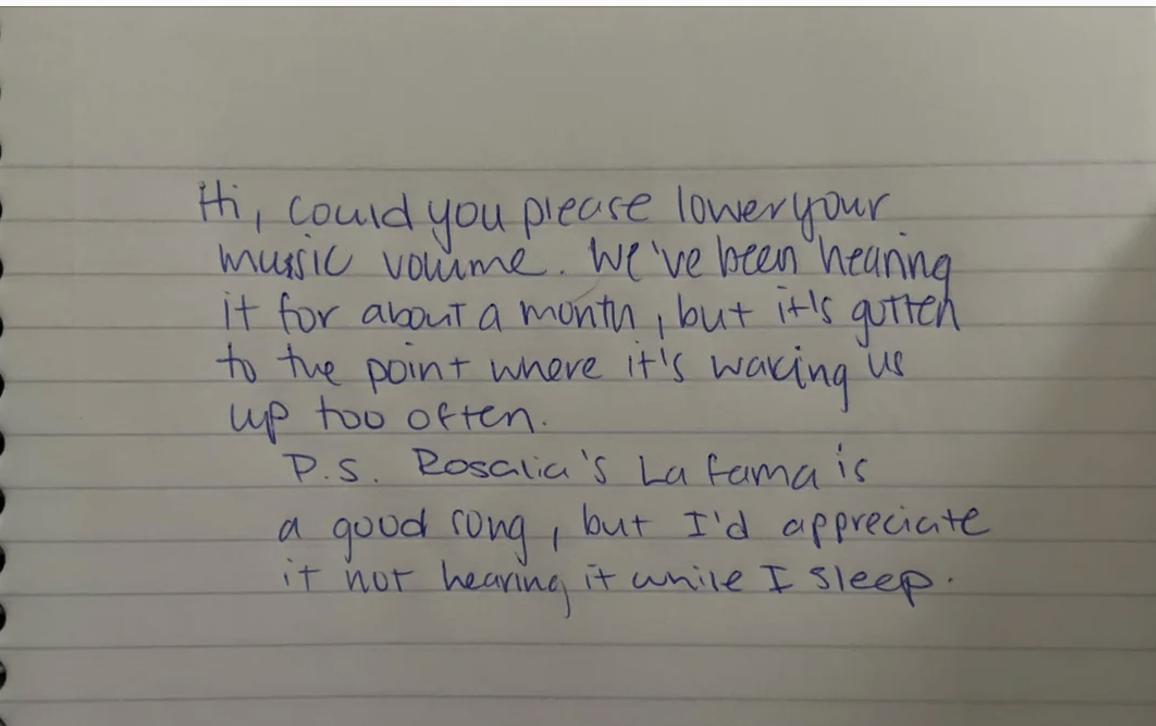 Hi, could you please lower your
music volume. We've been hearing
it for about a month, but it's gotten
to the point where it's waking us
up too often.
P.S. Rosalia's La fama is
a good song, but I'd appreciate
it not hearing it while I sleep.